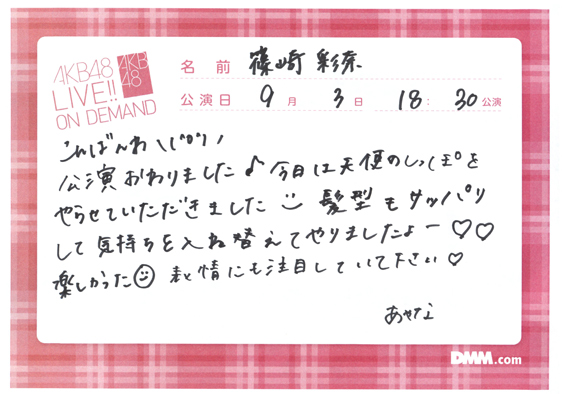 AKB48
LIVE!!
ON DEMAND
AKB
48
名前 篠崎 彩奈
公演日 9月 3日 18:30公演
こんばんわ\(^o^)/
公演おわりました♪今日は天使のしっぽを
やらせていただきました 髪型もサッパリ
して気持ちを入れ替えてやりましたよー♡♡
楽しかった☺ 表情にも注目していて下さい♡
あやな
DMM.com